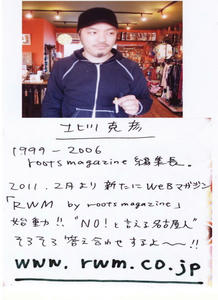 北川 克彦
1999 - 2006
roots magazine 編集長.
2011. 2月より 新たに WEBマガジン
「RWM by roots magazine」
始動!! "NO!と言える名古屋人"
そろそろ 答え合わせするよ〜!!
www.rwm.co.jp